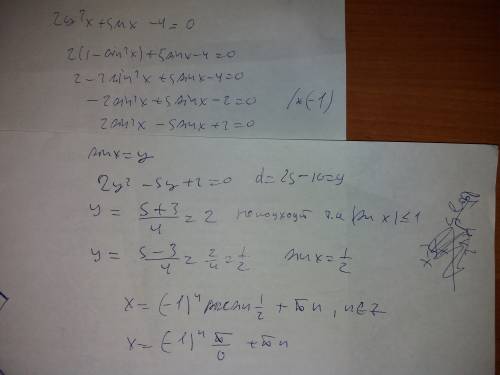 2cos²x + 5sinx - 4 = 0
2(1 - sin²x) + 5sinx - 4 = 0
2 - 2sin²x + 5sinx - 4 = 0
- 2sin²x + 5sinx - 2 = 0 /×(-1)
2sin²x - 5sinx + 2 = 0
sinx = y
2y² - 5y + 2 = 0 d = 25 - 16 = 9
y = (5+3)/4 = 2 не подходит т.к |sin x| ≤ 1
y = (5-3)/4 = 2/4 = 1/2 sinx = 1/2
x = (-1)ⁿ arcsin 1/2 + πn, n∈Z
x = (-1)ⁿ π/6 + πn